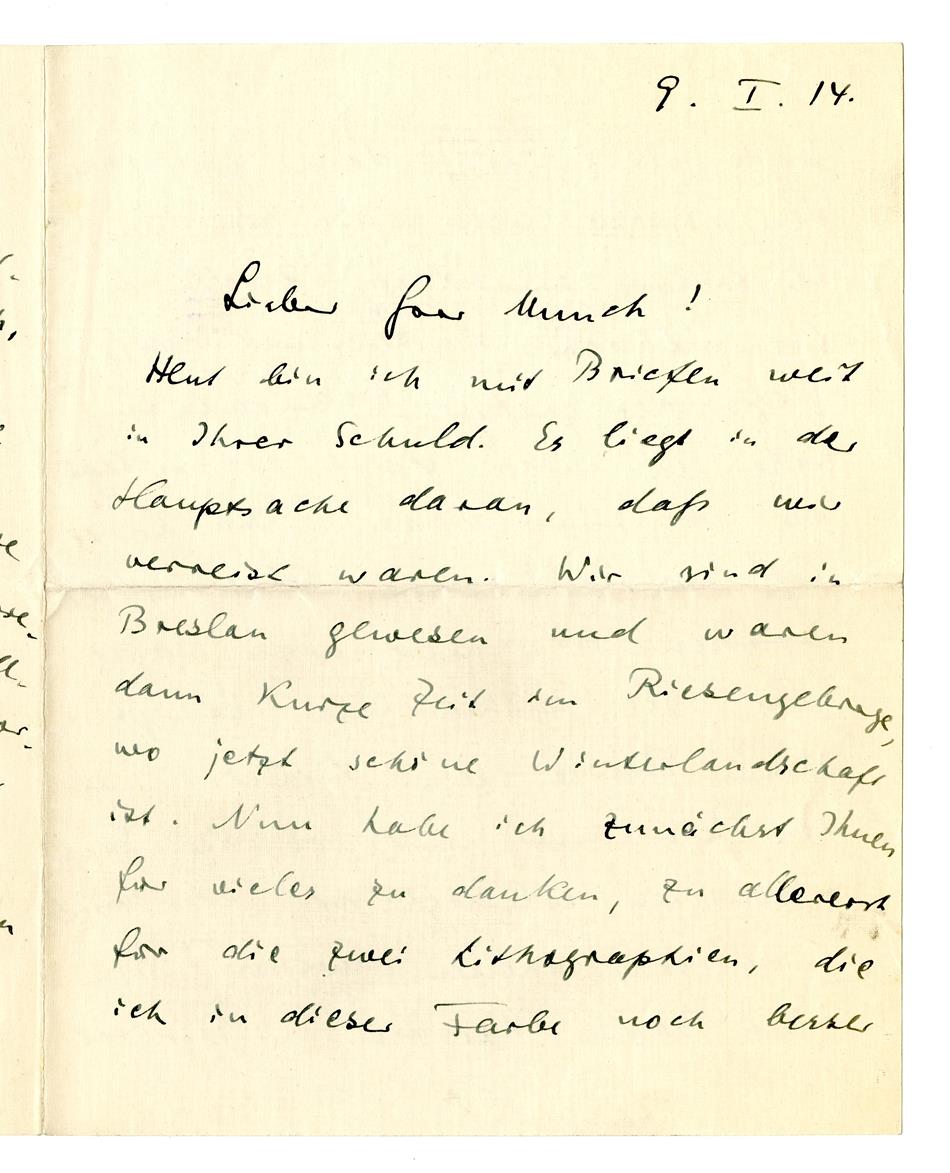 9. I. 14.
Lieber Herr Munch!
Heut bin ich mit Briefen weit
in Ihrer Schuld. Es liegt in der
Hauptsache daran, daß wir
verreist waren. Wir sind in
Breslau gewesen und waren
dann kurze Zeit im Riesengebirge,
wo jetzt schöne Winterlandschaft
ist. Nun habe ich zunächst Ihnen
für vieles zu danken, zu allererst
für die zwei Lithographien, die
ich in dieser Farbe noch besser